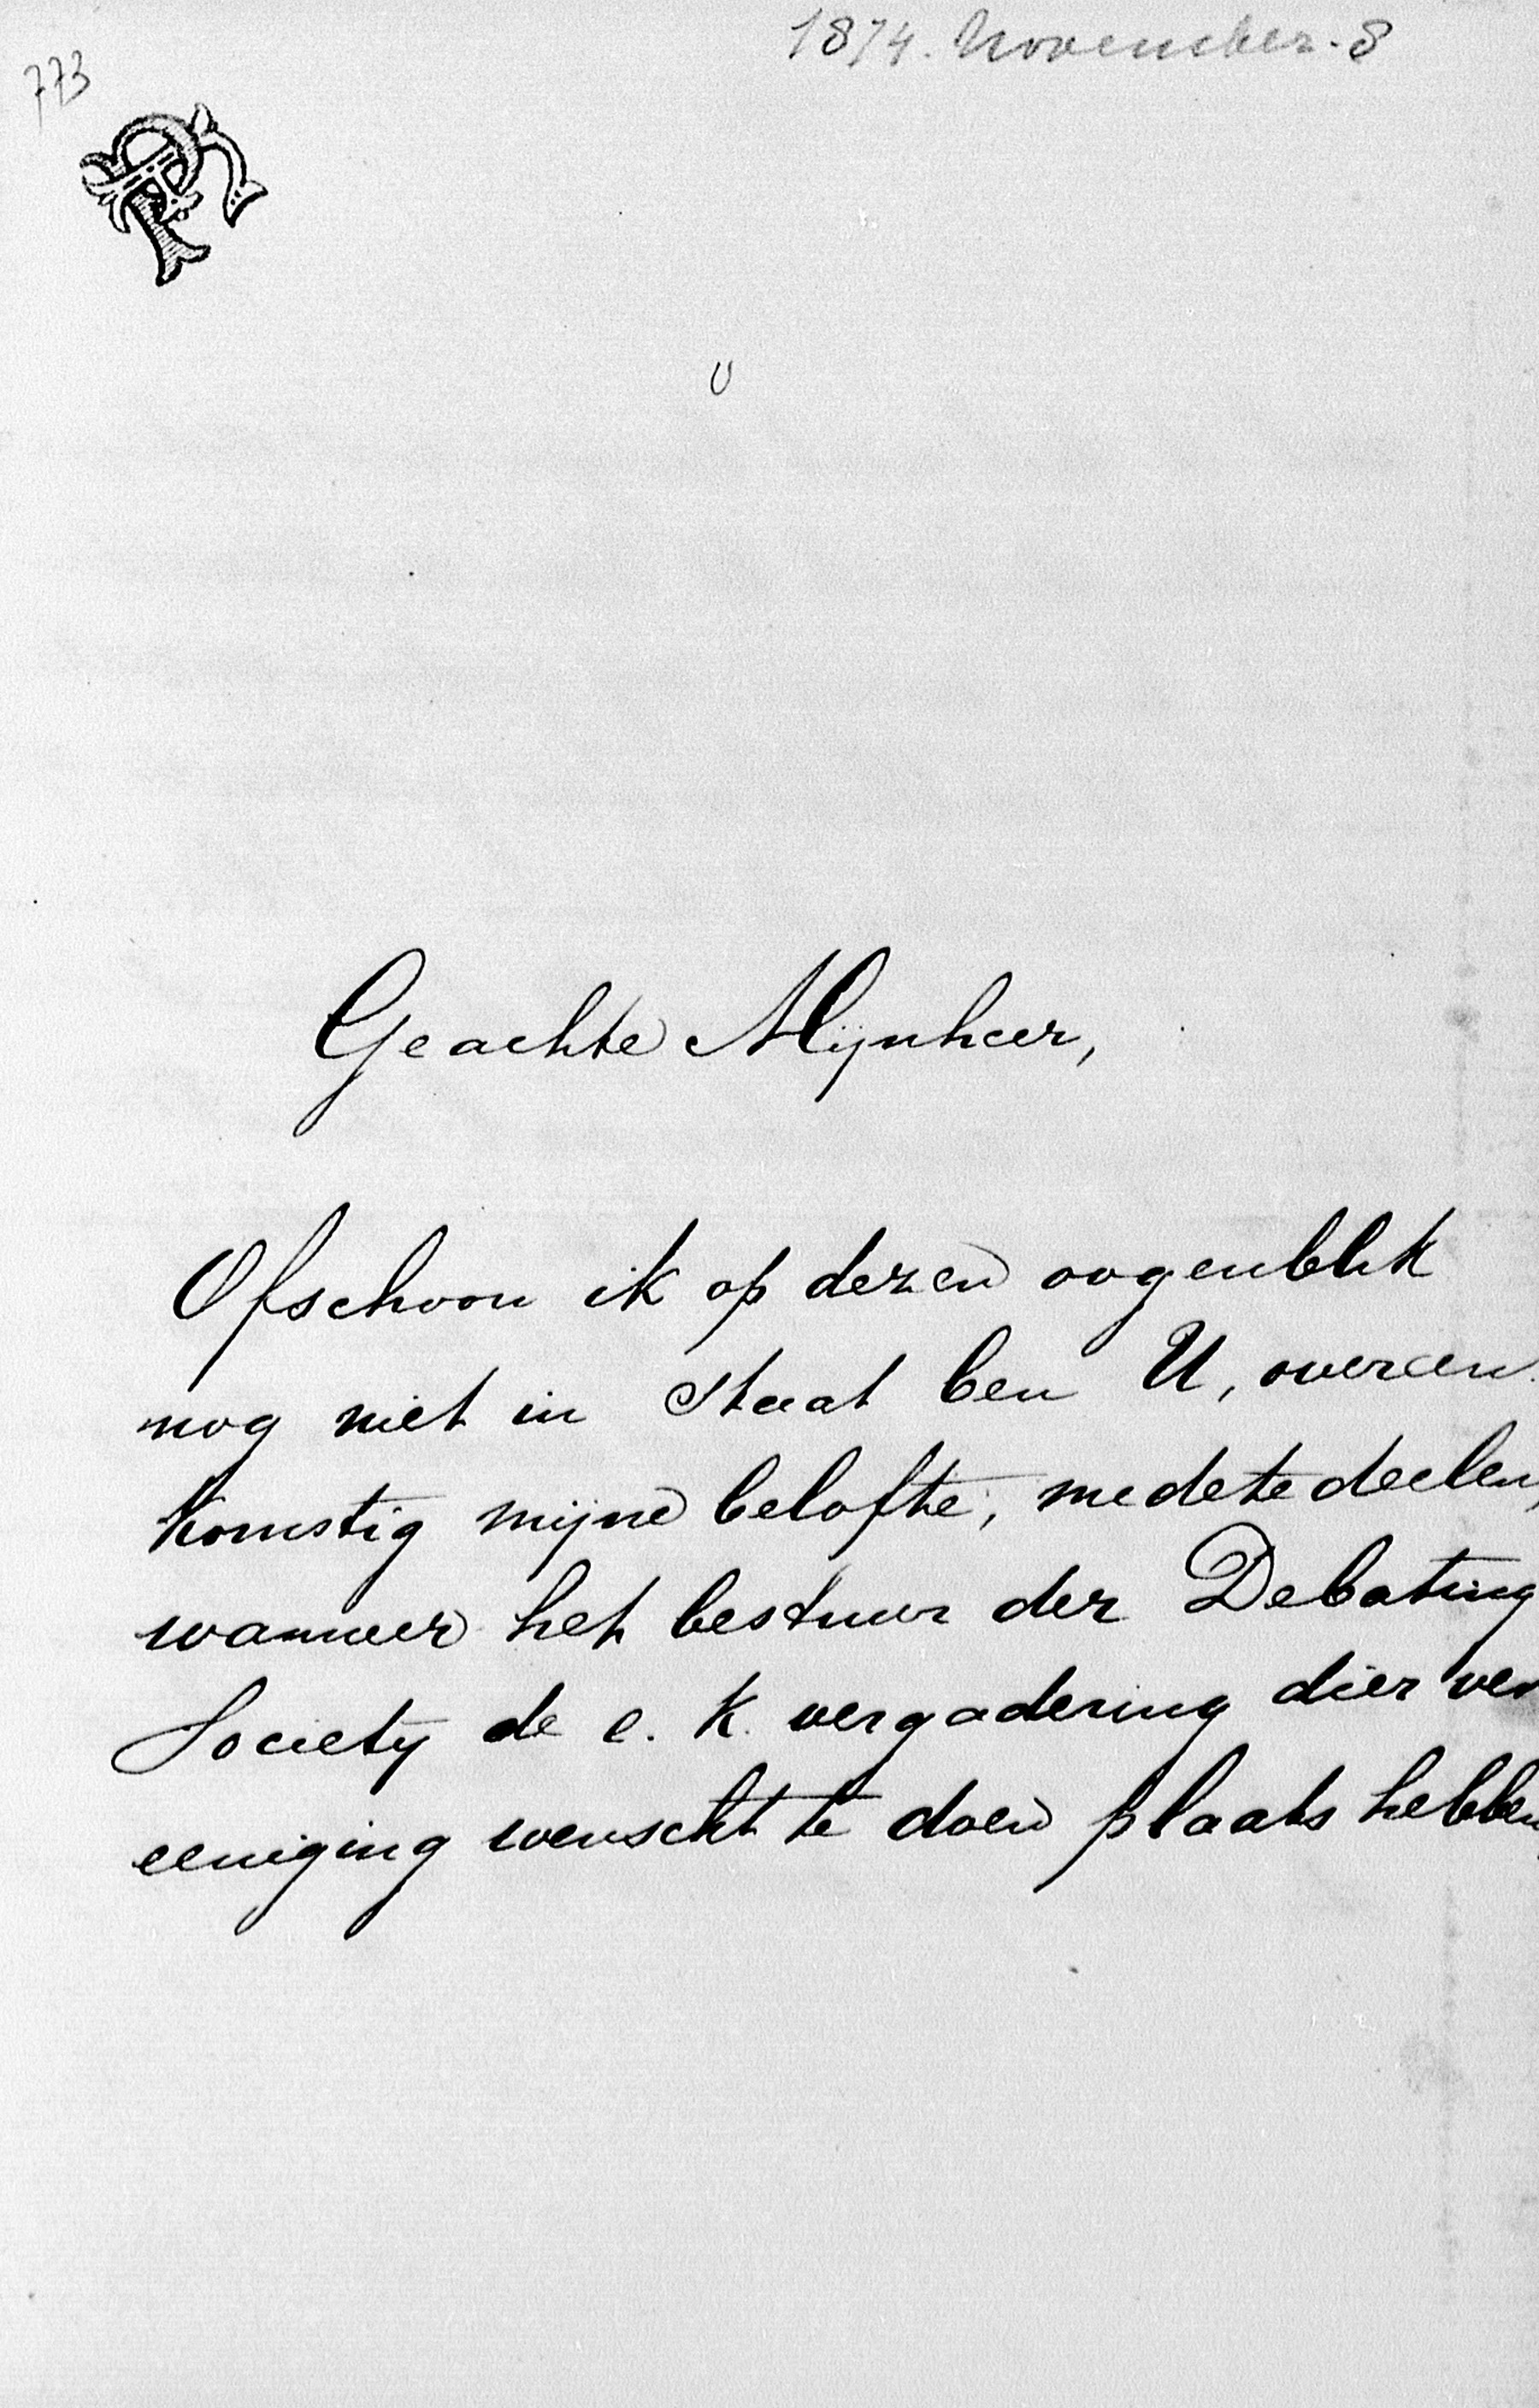 1874. November. 8
773
Geachte Mijnheer,
Ofschoon ik op dezen oogenblik
nog niet in staat ben U, overeen
komstig mijne belofte, mede te deelen,
wanneer het bestuur der Debating
Society de e. k. vergadering dier ver
eeniging wenscht te doen plaats hebben,